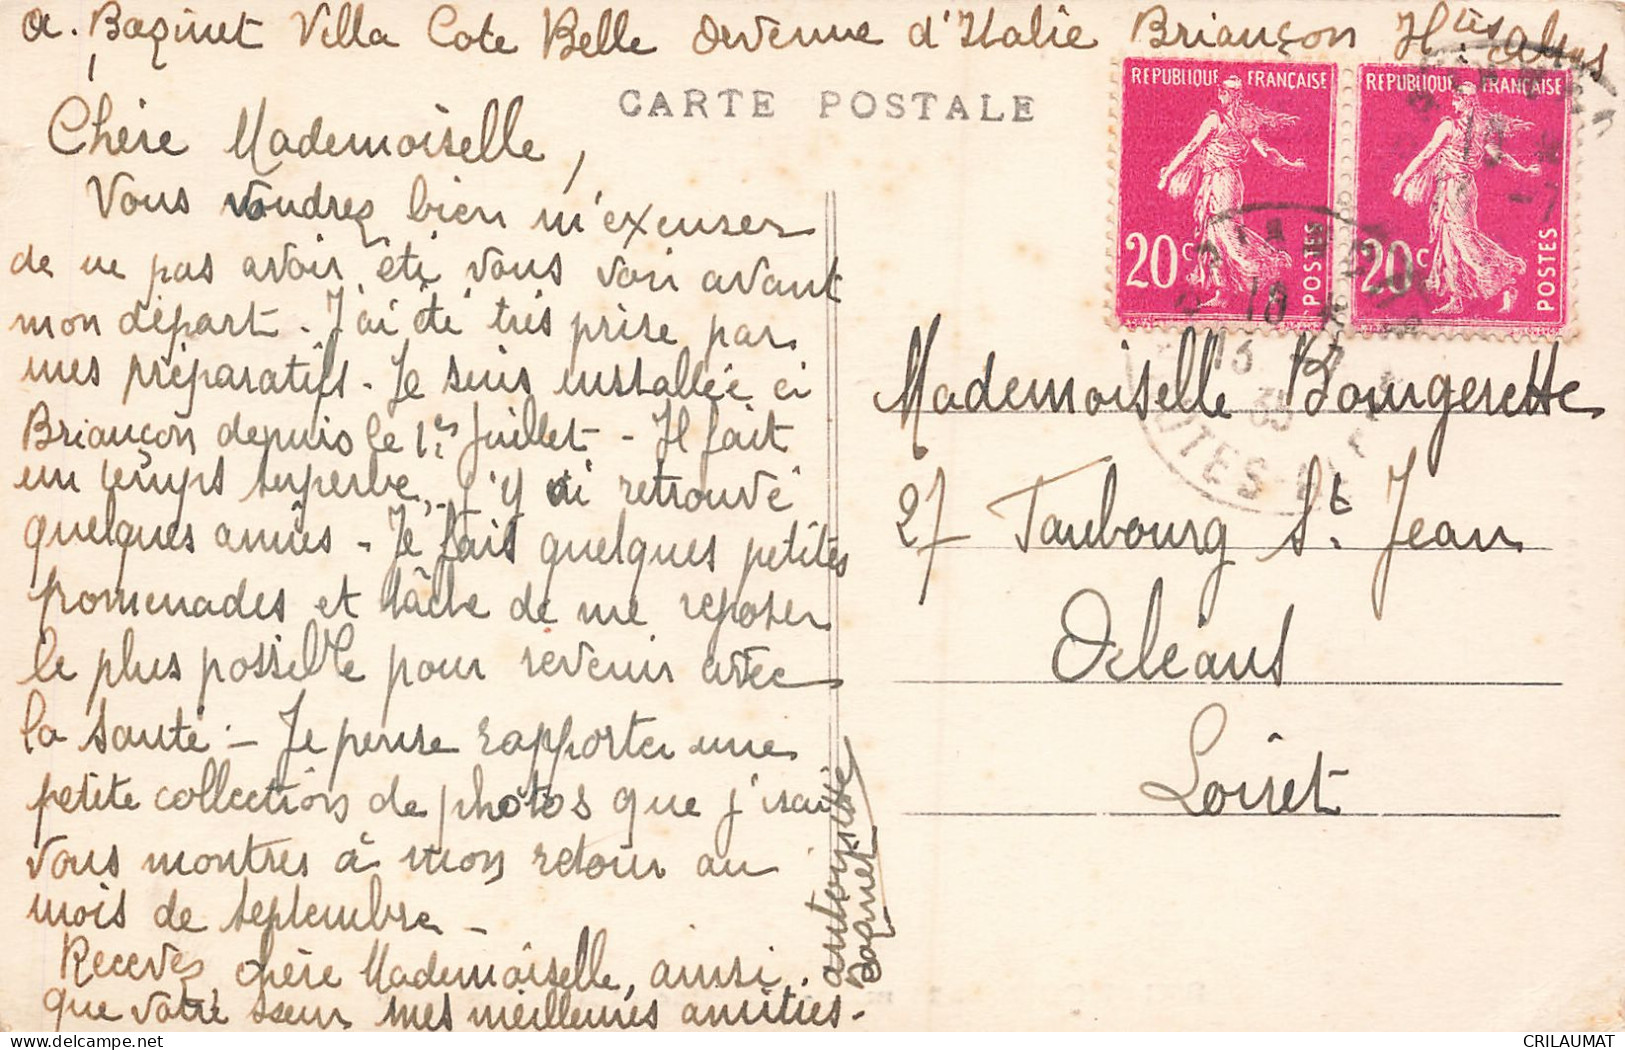 a. Baquet Villa Cote Belle Avenue d'Italie Briançon Htes Alpes
CARTE POSTALE
REPUBLIQUE FRANÇAISE
20c POSTES
REPUBLIQUE FRANÇAISE
20c POSTES
Chère Mademoiselle,
Vous voudrez bien m'excuser
de ne pas avoir été vous voir avant
mon départ. J'ai été très prise par
mes préparatifs. Je suis installée ici
Briançon depuis le 1er Juillet - Il fait
un temps superbe, j'y ai retrouvé
quelques amies - Je fais quelques petites
promenades et tâche de me reposer
le plus possible pour revenir avec
la santé. - Je pense rapporter une
petite collection de photos que j'irai
vous montrer à mon retour au
mois de septembre -
Recevez, chère Mademoiselle, ainsi
que votre sœur mes meilleures amitiés.
Baquet
Mademoiselle Bougerette
27 Faubourg St. Jean
Orléans
Loiret
CRILAUMAT